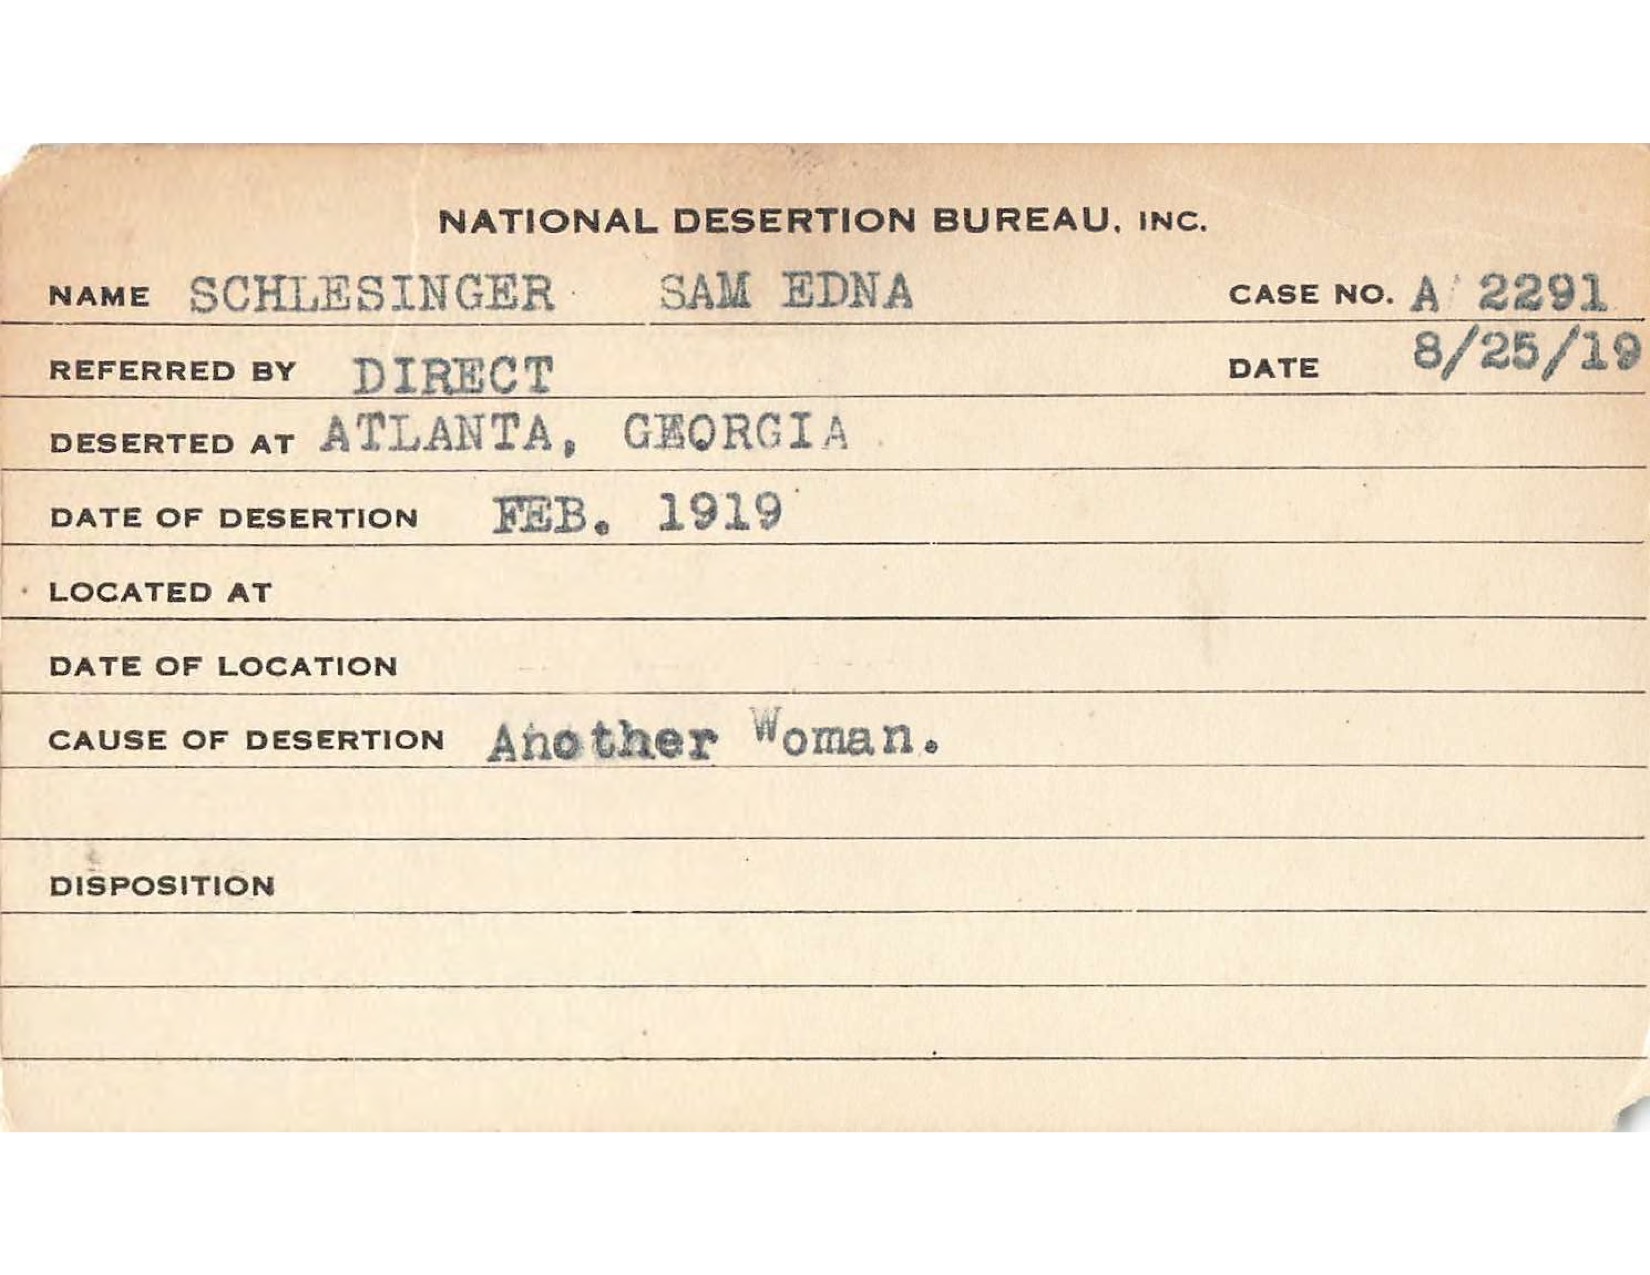 NATIONAL DESERTION BUREAU, INC.
NAME SCHLESINGER SAM EDNA CASE NO. A 2291
REFERRED BY DIRECT DATE 8/25/19
DESERTED AT ATLANTA, GEORGIA
DATE OF DESERTION FEB. 1919
LOCATED AT
DATE OF LOCATION
CAUSE OF DESERTION Another Woman.
DISPOSITION